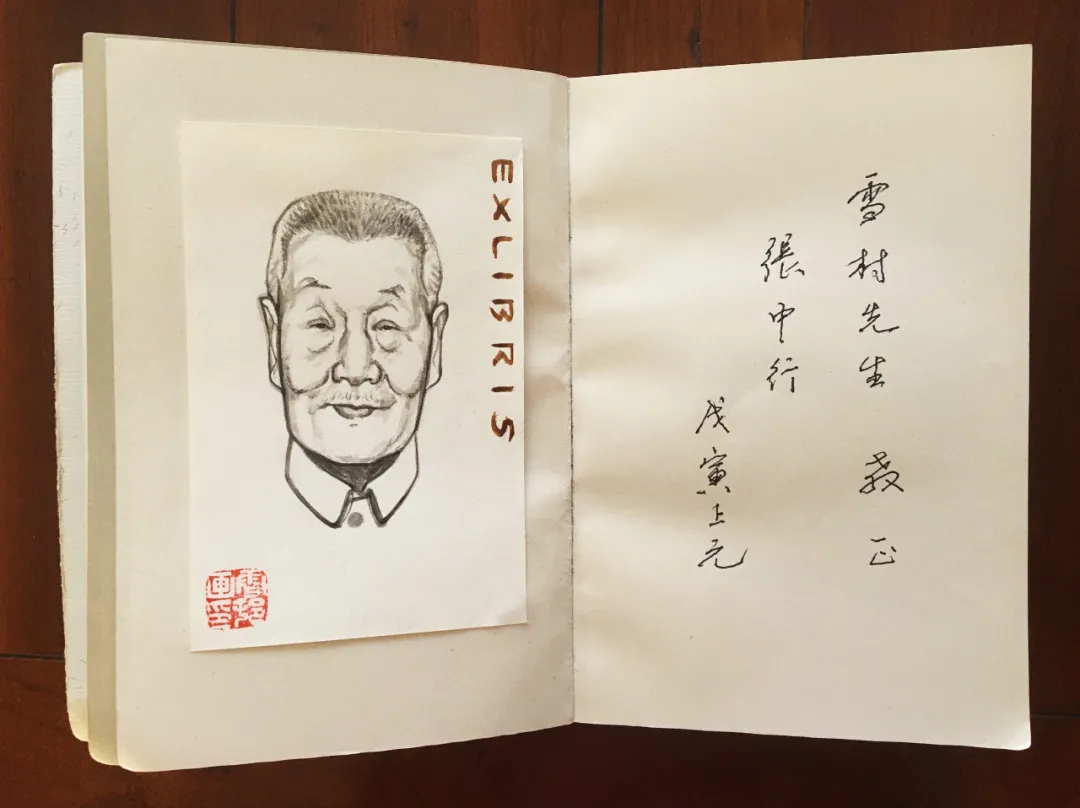 EXLIBRIS
雪村先生 教正
張中行
戊寅上元